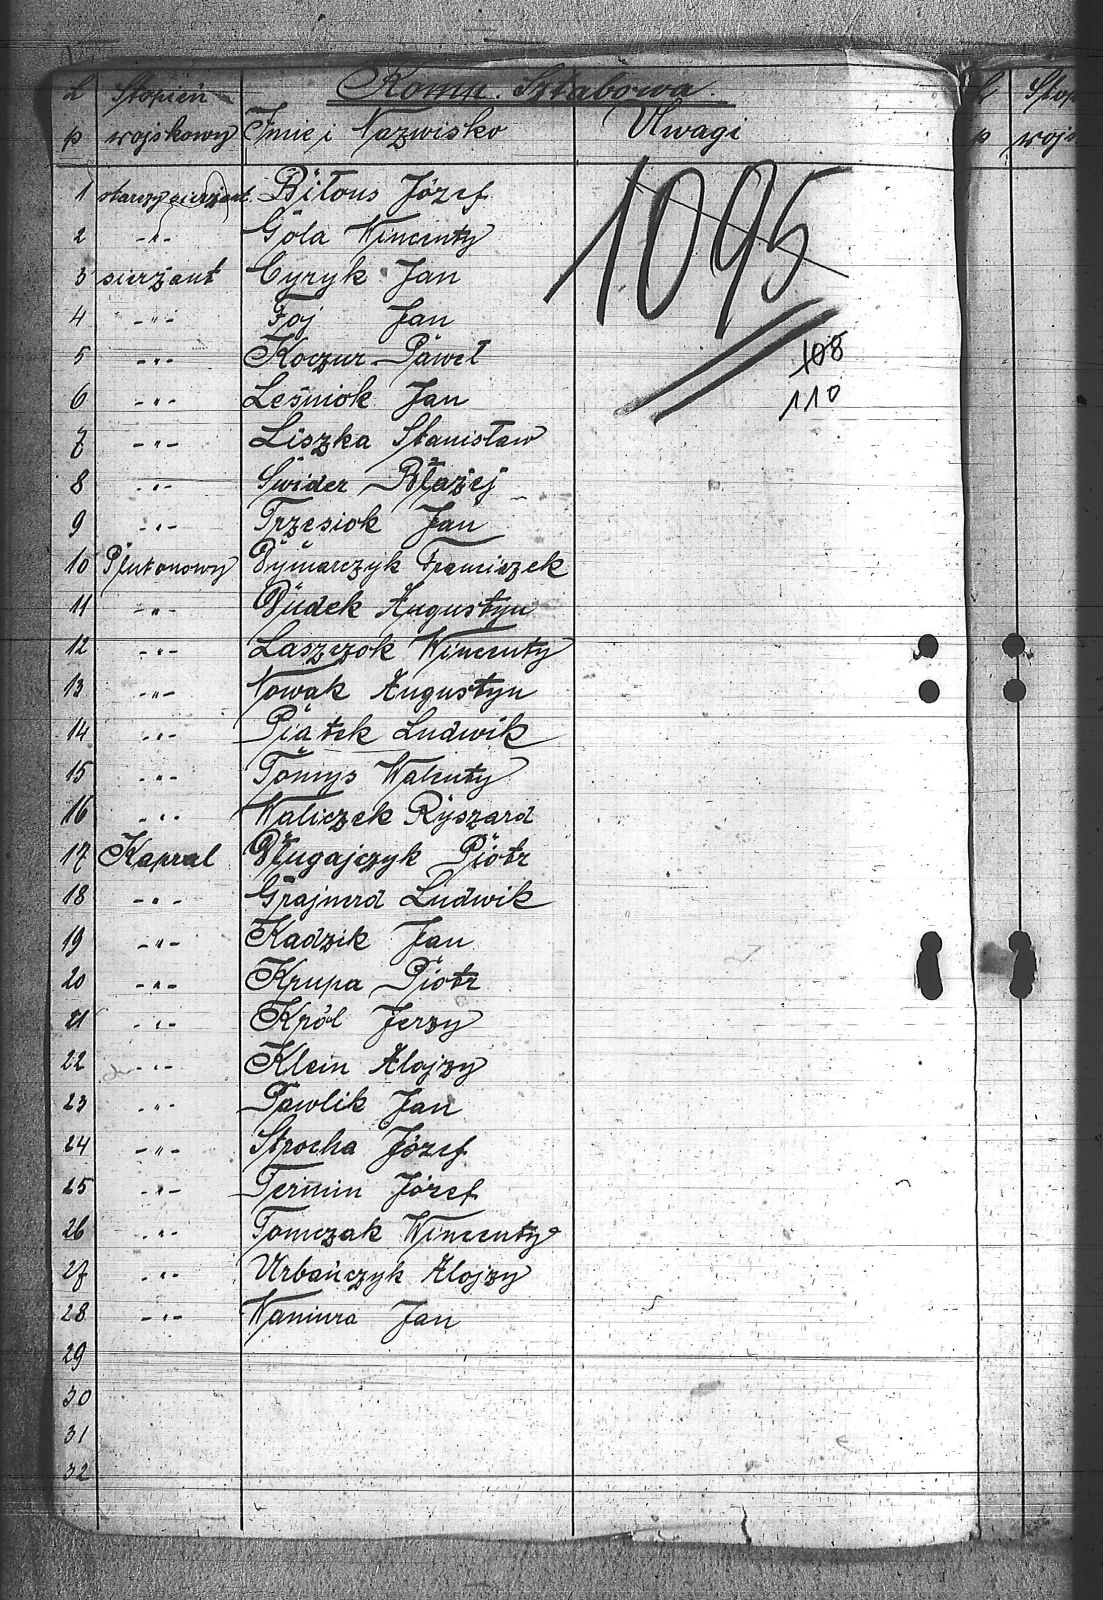 Komp. Sztabowa
L p Stopień wojskowy Imię i Nazwisko Uwagi
1 starszy sierżant Bitous Józef
2 -"- Gola Wincenty
3 sierżant Cyryk Jan
4 -"- Foj Jan
5 -"- Koczur Paweł
6 -"- Leśniok Jan
7 -"- Liszka Stanisław
8 -"- Świder Błażej
9 -"- Trzęsiok Jan
10 Plutonowy Dymarczyk Franciszek
11 -"- Dudek Augustyn
12 -"- Laszczok Wincenty
13 -"- Nowak Augustyn
14 -"- Piątek Ludwik
15 -"- Tomys Walenty
16 -"- Waliczek Ryszard
17 Kapral Długajczyk Piotr
18 -"- Grajnerd Ludwik
19 -"- Kadzik Jan
20 -"- Krupa Piotr
21 -"- Król Jerzy
22 -"- Klein Alojzy
23 -"- Pawlik Jan
24 -"- Strocha Józef
25 -"- Termin Józef
26 -"- Tomczak Wincenty
27 -"- Urbańczyk Alojzy
28 -"- Waniura Jan
29
30
31
32
1095
108
110
L p